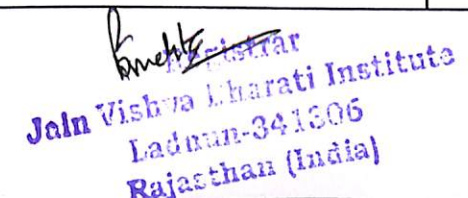 Registrar
Jain Vishva Bharati Institute
Ladnun-341306
Rajasthan (India)